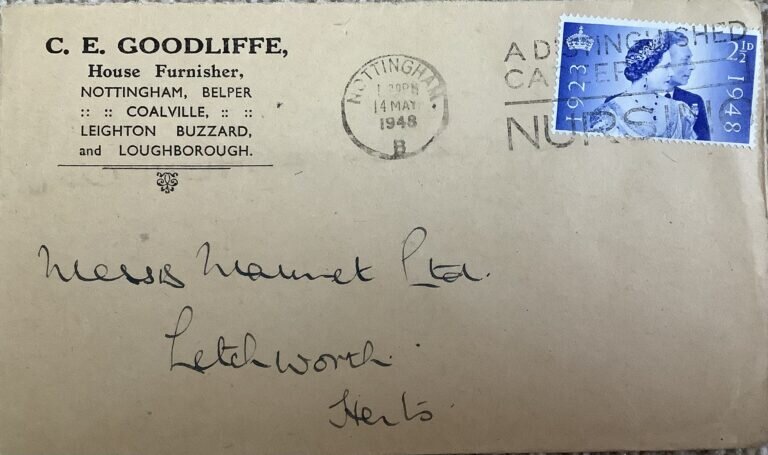 C. E. GOODLIFFE,
House Furnisher,
NOTTINGHAM, BELPER
:: :: COALVILLE, :: ::
LEIGHTON BUZZARD,
and LOUGHBOROUGH.
NOTTINGHAM.
14 MAY
1948
B
A DISTINGUISHED
CAREER
NURSING
1923
2½D
1948
Messrs Ltd.
Letchworth
Herts